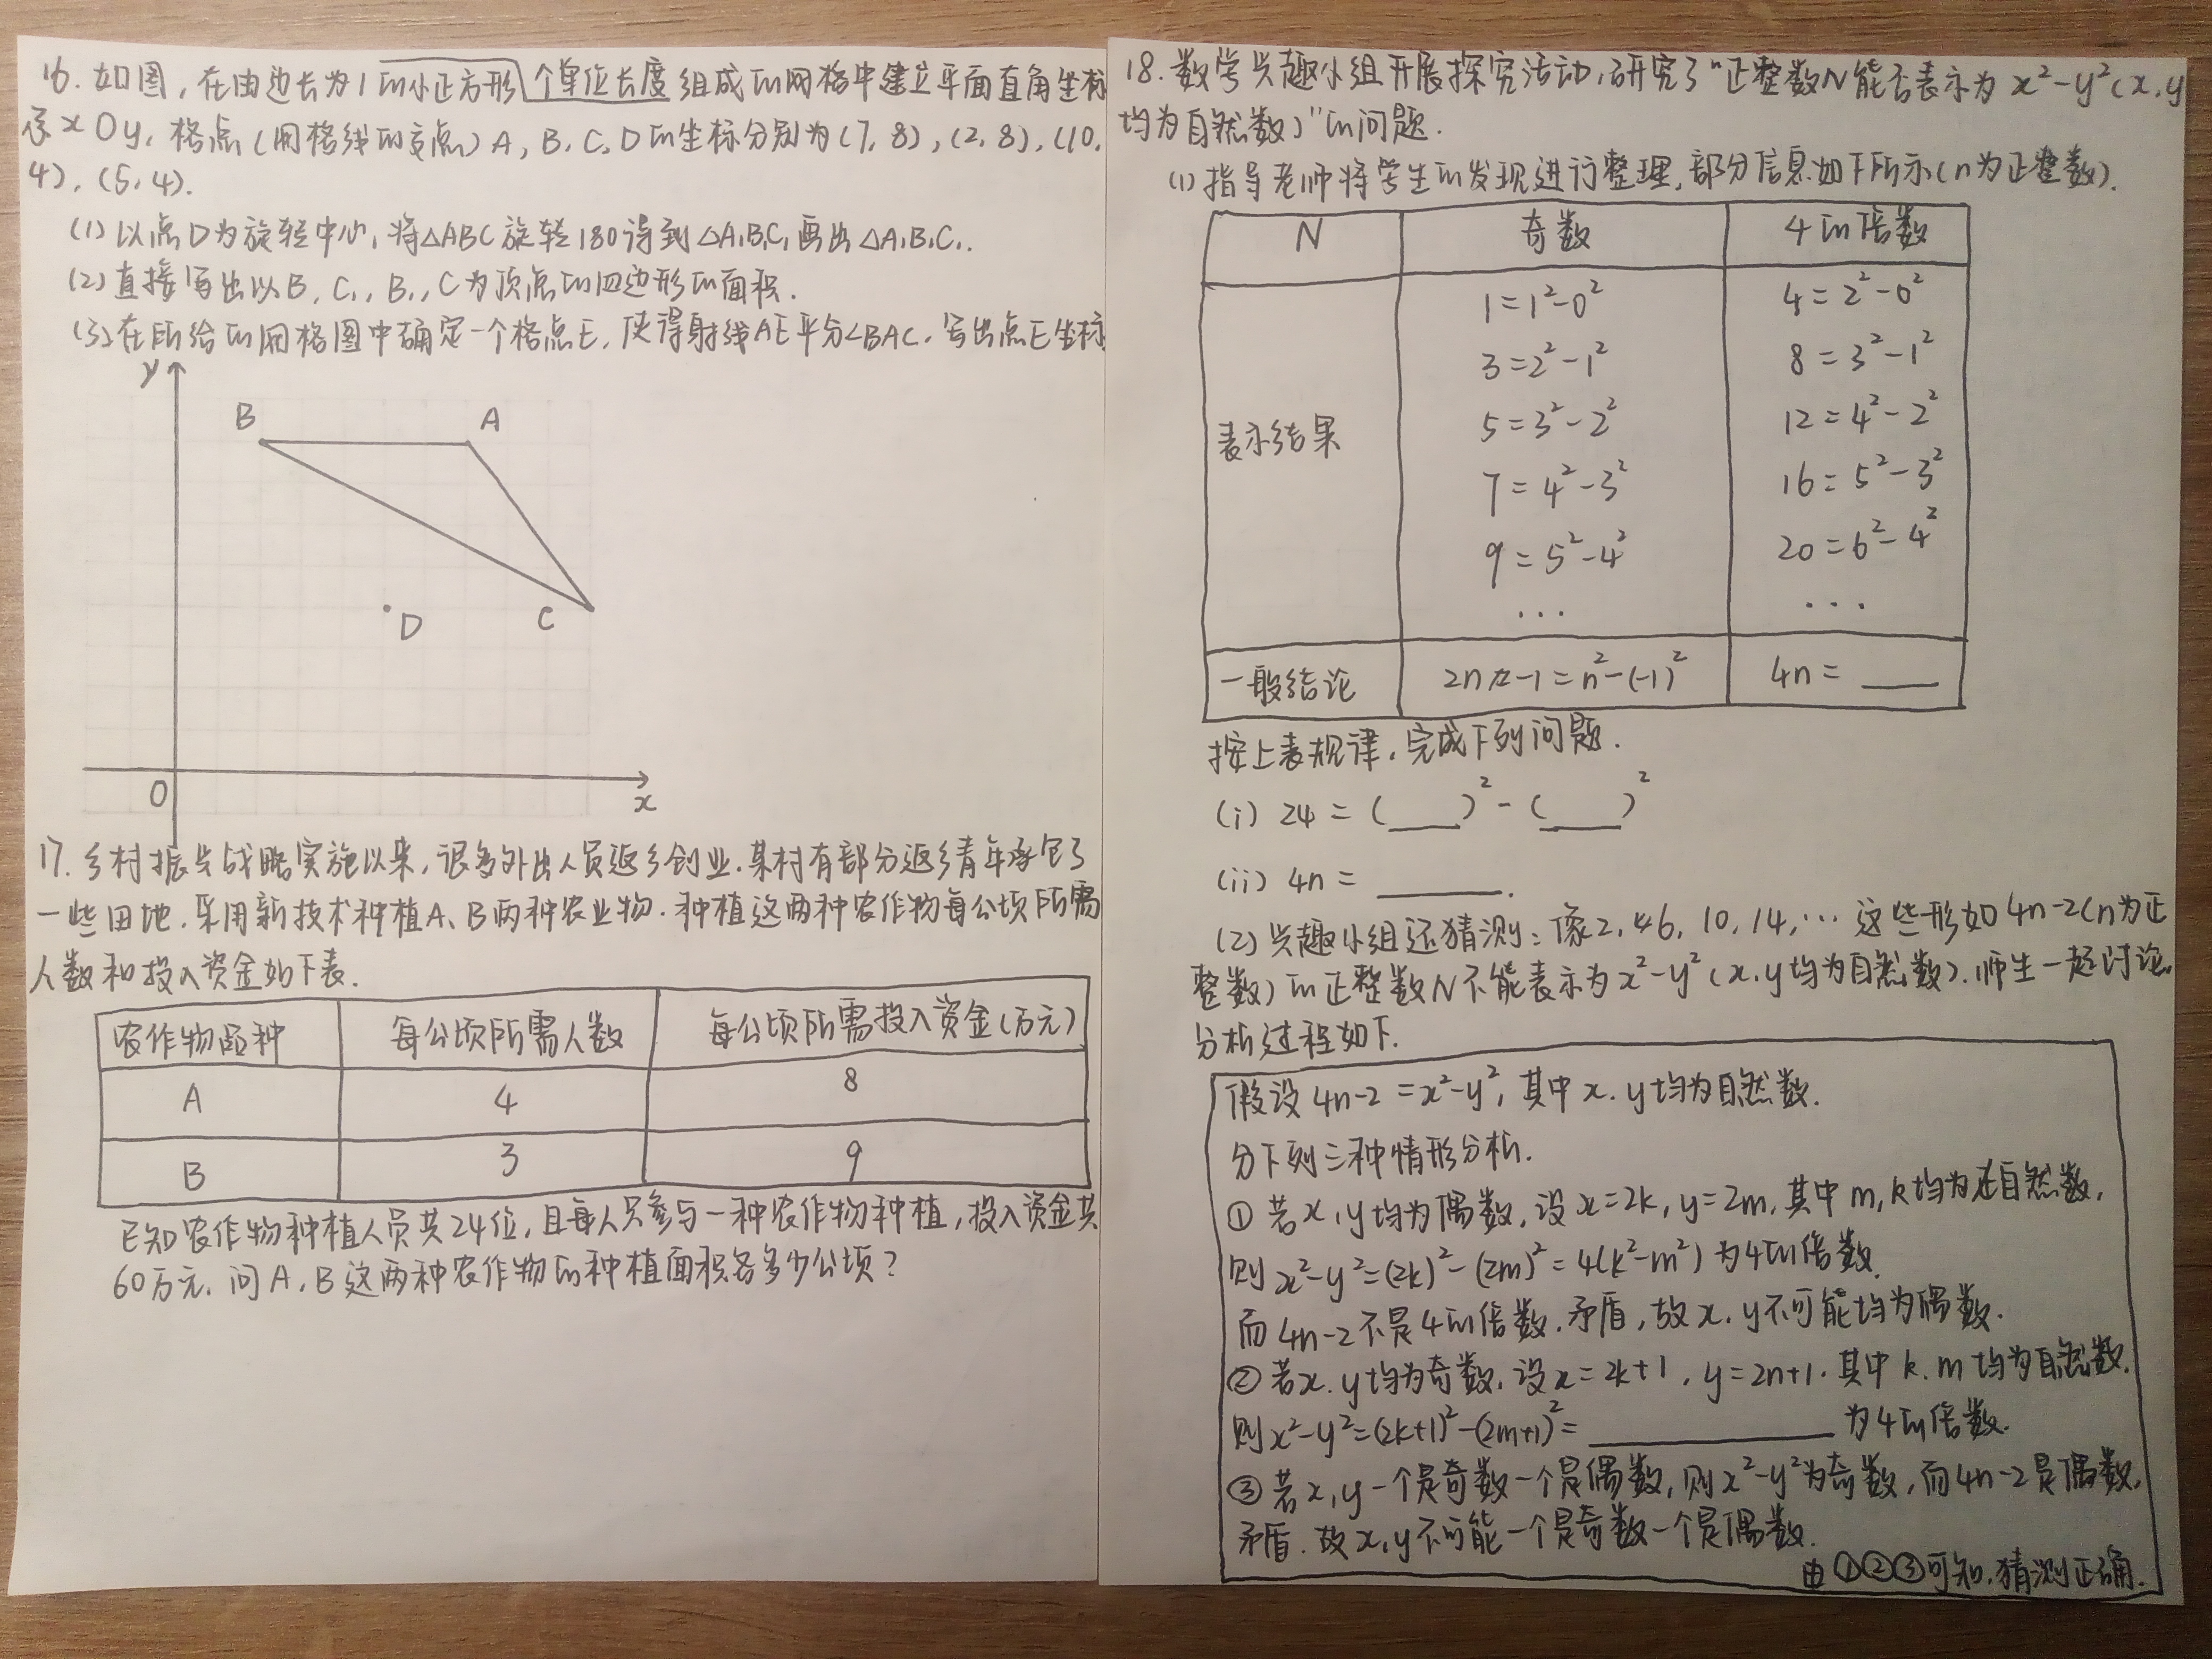 16. 如图，在由边长为1的小正方形个单位长度组成的网格中建立平面直角坐标
系xOy, 格点(网格线的交点) A, B, C, D的坐标分别为(7, 8), (2, 8), (10,
4), (5, 4).
(1) 以点D为旋转中心, 将△ABC旋转180得到△A₁B₁C₁, 画出△A₁B₁C₁.
(2) 直接写出以B, C₁, B₁, C为顶点的四边形的面积.
(3) 在所给的网格图中确定一个格点E, 使得射线AE平分∠BAC. 写出点E坐标
y
B
A
D
C
O
x
17. 乡村振兴战略实施以来, 很多外出人员返乡创业. 某村有部分返乡青年承包了
一些田地. 采用新技术种植A、B两种农业物. 种植这两种农作物每公顷所需
人数和投入资金如下表.
农作物品种 每公顷所需人数 每公顷所需投入资金(万元)
A 4 8
B 3 9
已知农作物种植人员共24位, 且每人只参与一种农作物种植, 投入资金共
60万元. 问A, B这两种农作物的种植面积各多少公顷?
18. 数学兴趣小组开展探究活动, 研究了"正整数N能否表示为x²-y²(x, y
均为自然数)"的问题.
(1) 指导老师将学生的发现进行整理, 部分信息如下所示(n为正整数).
N 奇数 4的倍数
表示结果
1=1²-0² 4=2²-0²
3=2²-1² 8=3²-1²
5=3²-2² 12=4²-2²
7=4²-3² 16=5²-3²
9=5²-4² 20=6²-4²
... ...
一般结论 2n-1=n²-(-1)² 4n=____
按上表规律, 完成下列问题.
(i) 24=(____)²-(____)²
(ii) 4n=______.
(2) 兴趣小组还猜测: 像2, 6, 10, 14, … 这些形如4n-2(n为正
整数)的正整数N不能表示为x²-y²(x, y均为自然数). 师生一起讨论
分析过程如下.
假设4n-2=x²-y², 其中x, y均为自然数.
分下列三种情形分析.
① 若x, y均为偶数, 设x=2k, y=2m, 其中m, k均为自然数,
则x²-y²=(2k)²-(2m)²=4(k²-m²)为4的倍数.
而4n-2不是4的倍数. 矛盾, 故x, y不可能均为偶数.
② 若x, y均为奇数, 设x=2k+1, y=2n+1. 其中k, m均为自然数.
则x²-y²=(2k+1)²-(2m+1)²=__________为4的倍数.
③ 若x, y一个是奇数一个是偶数, 则x²-y²为奇数, 而4n-2是偶数,
矛盾. 故x, y不可能一个是奇数一个是偶数.
由①②③可知, 猜测正确.